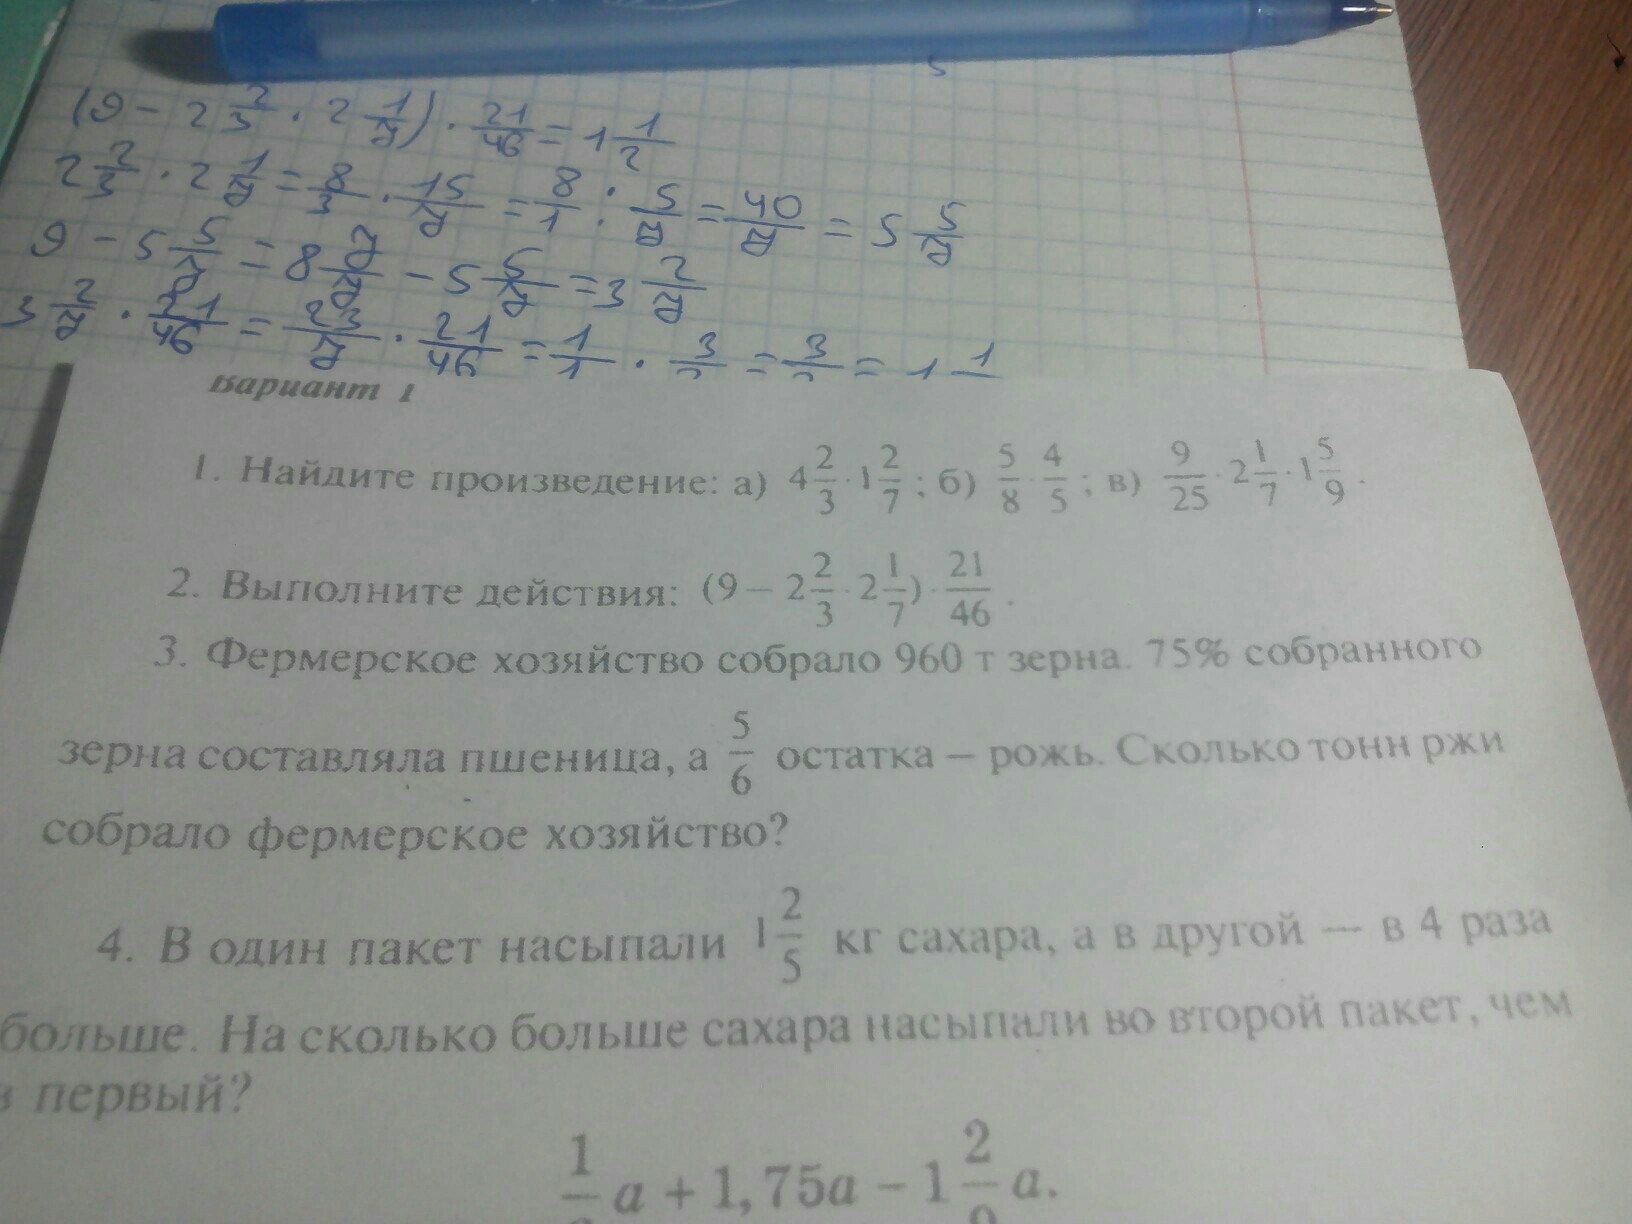 (9 - 2 2/3 · 2 1/7) · 21/46 = 1 1/2
2 2/3 · 2 1/7 = 8/3 · 15/7 = 8/1 · 5/7 = 40/7 = 5 5/7
9 - 5 5/7 = 8 7/7 - 5 5/7 = 3 2/7
3 2/7 · 21/46 = 23/7 · 21/46 = 1/1 · 3/2 = 3/2 = 1 1
Вариант 1
1. Найдите произведение: а) 4 2/3 · 1 2/7 ; б) 5/8 · 4/5 ; в) 9/25 · 2 1/7 · 1 5/9 .
2. Выполните действия: (9 – 2 2/3 · 2 1/7) · 21/46 .
3. Фермерское хозяйство собрало 960 т зерна. 75% собранного
зерна составляла пшеница, а 5/6 остатка – рожь. Сколько тонн ржи
собрало фермерское хозяйство?
4. В один пакет насыпали 1 2/5 кг сахара, а в другой — в 4 раза
больше. На сколько больше сахара насыпали во второй пакет, чем
в первый?
a + 1,75a – 1 2/9 a.